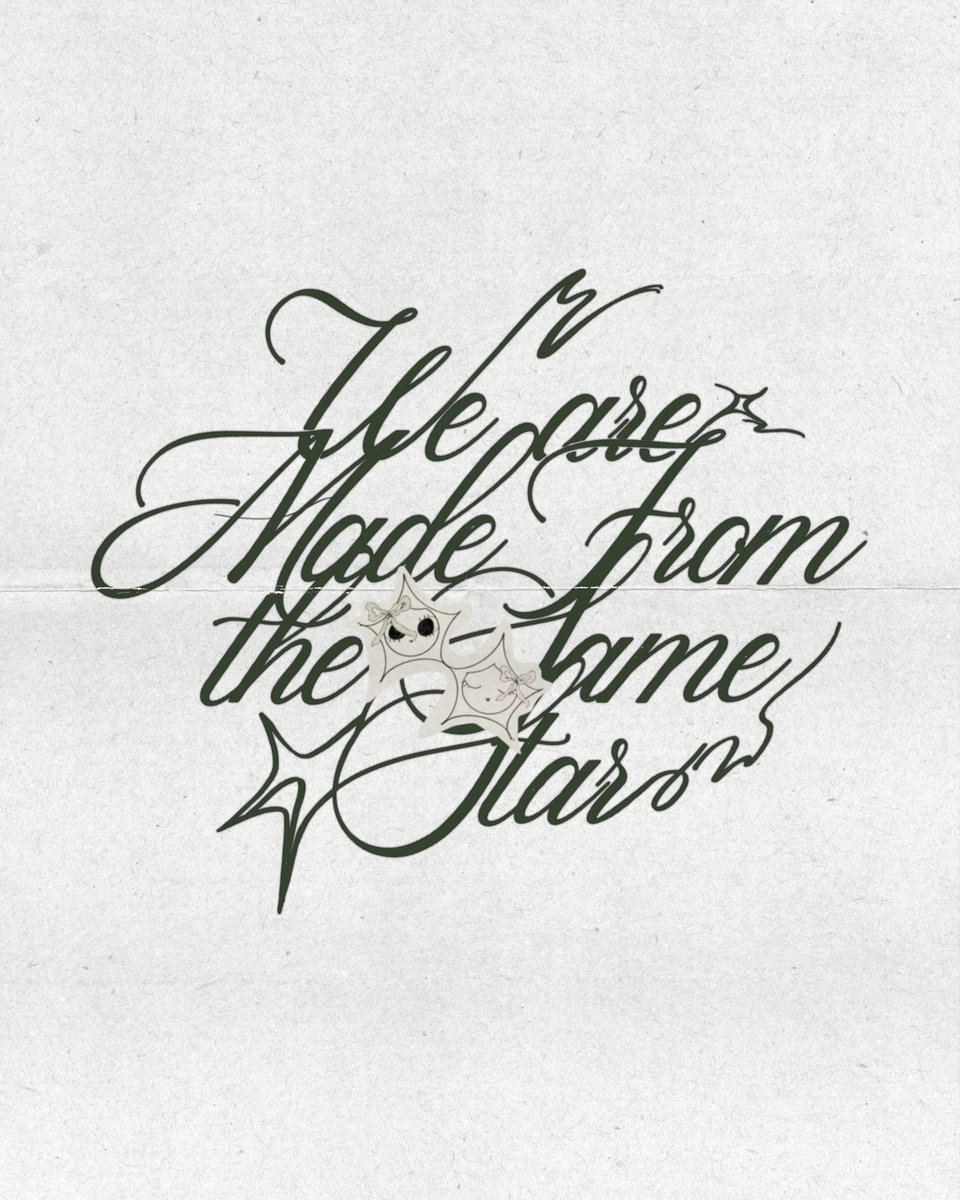 We are
Made From
the Same
Star